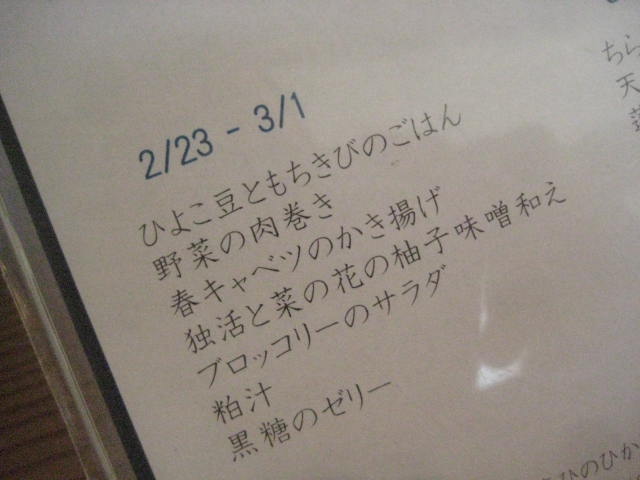 2/23 - 3/1
ひよこ豆ともちきびのごはん
野菜の肉巻き
春キャベツのかき揚げ
独活と菜の花の柚子味噌和え
ブロッコリーのサラダ
粕汁
黒糖のゼリー
ちら
天
ひのひか